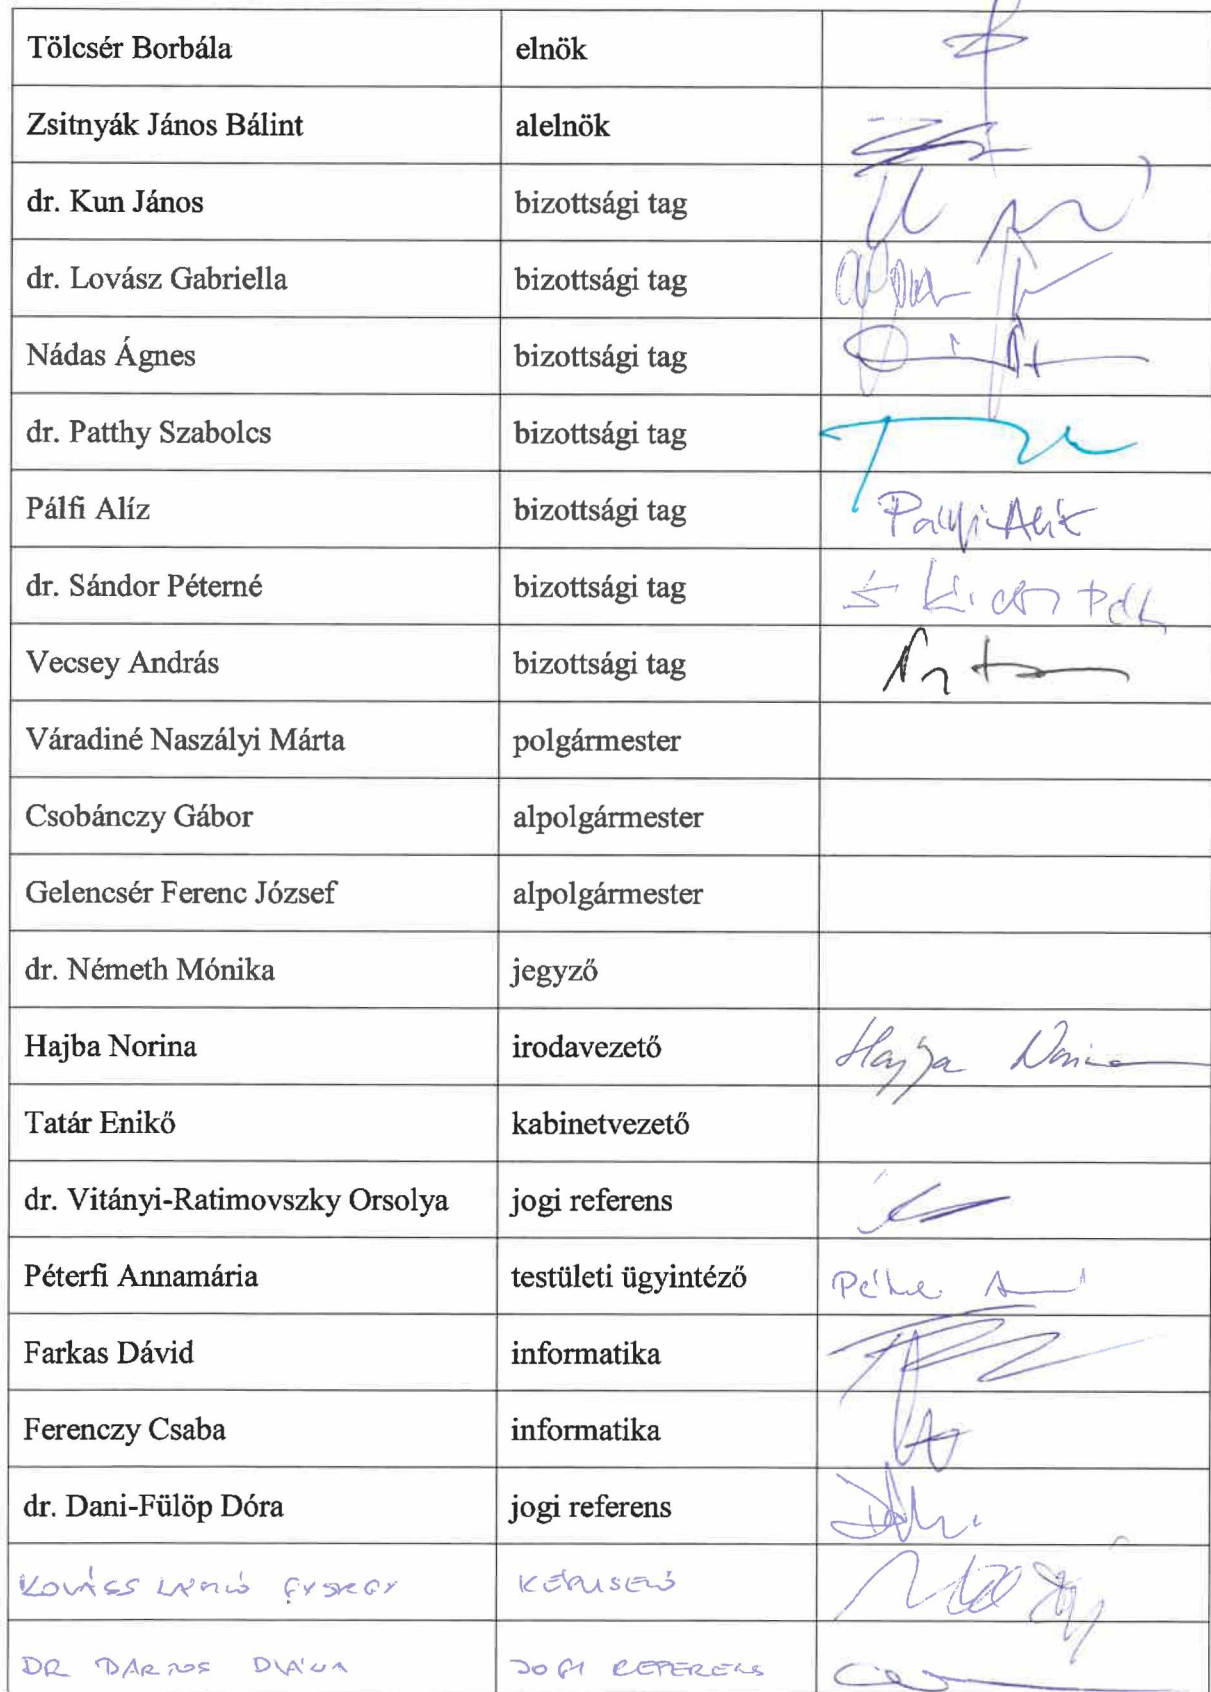 Tölcsér Borbála elnök
Zsitnyák János Bálint alelnök
dr. Kun János bizottsági tag
dr. Lovász Gabriella bizottsági tag
Nádas Ágnes bizottsági tag
dr. Patthy Szabolcs bizottsági tag
Pálfi Alíz bizottsági tag Pálfi Alíz
dr. Sándor Péterné bizottsági tag
Vecsey András bizottsági tag
Váradiné Naszályi Márta polgármester
Csobánczy Gábor alpolgármester
Gelencsér Ferenc József alpolgármester
dr. Németh Mónika jegyző
Hajba Norina irodavezető Hajba Norina
Tatár Enikő kabinetvezető
dr. Vitányi-Ratimovszky Orsolya jogi referens
Péterfi Annamária testületi ügyintéző
Farkas Dávid informatika
Ferenczy Csaba informatika
dr. Dani-Fülöp Dóra jogi referens
KOVÁCS LÁSZLÓ GYÖRGY KÉPVISELŐ
DR DARÓCI DIÁNA JOGI REFERENS